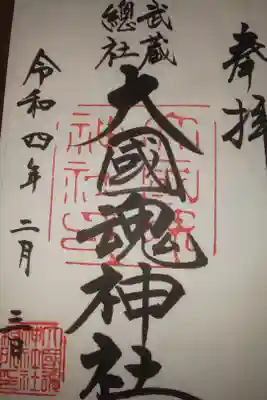 奉拝
武蔵
總社
大國魂神社
令和四年二月三日